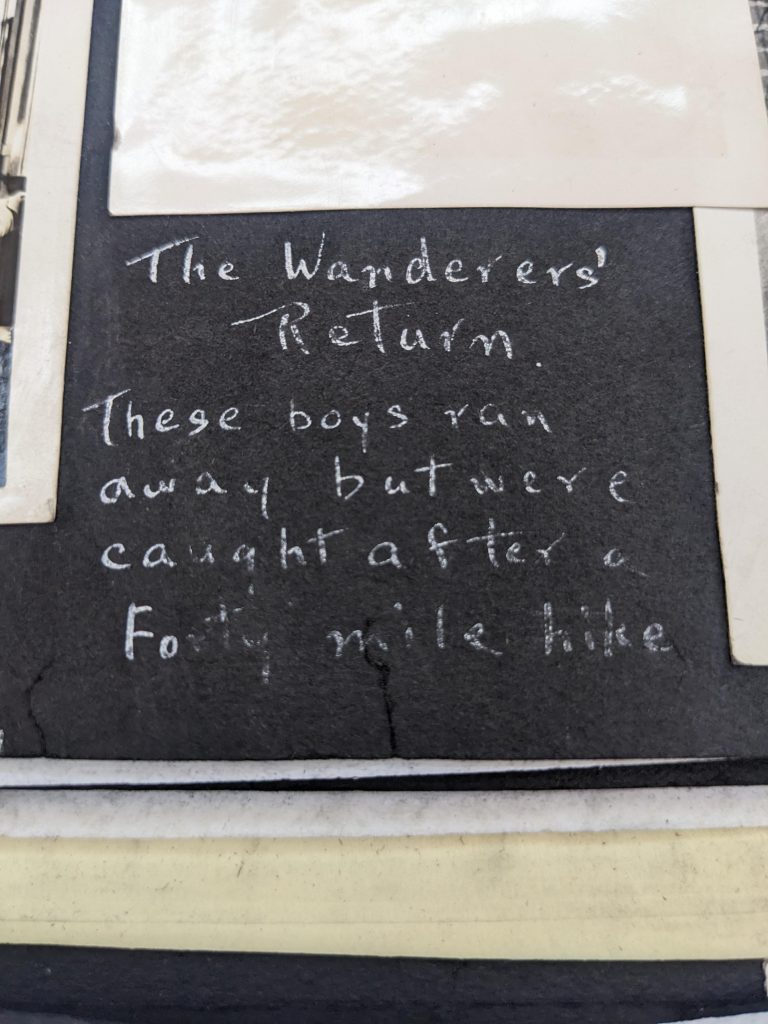 The Wanderers'
Return.
These boys ran
away but were
caught after a
Forty mile hike